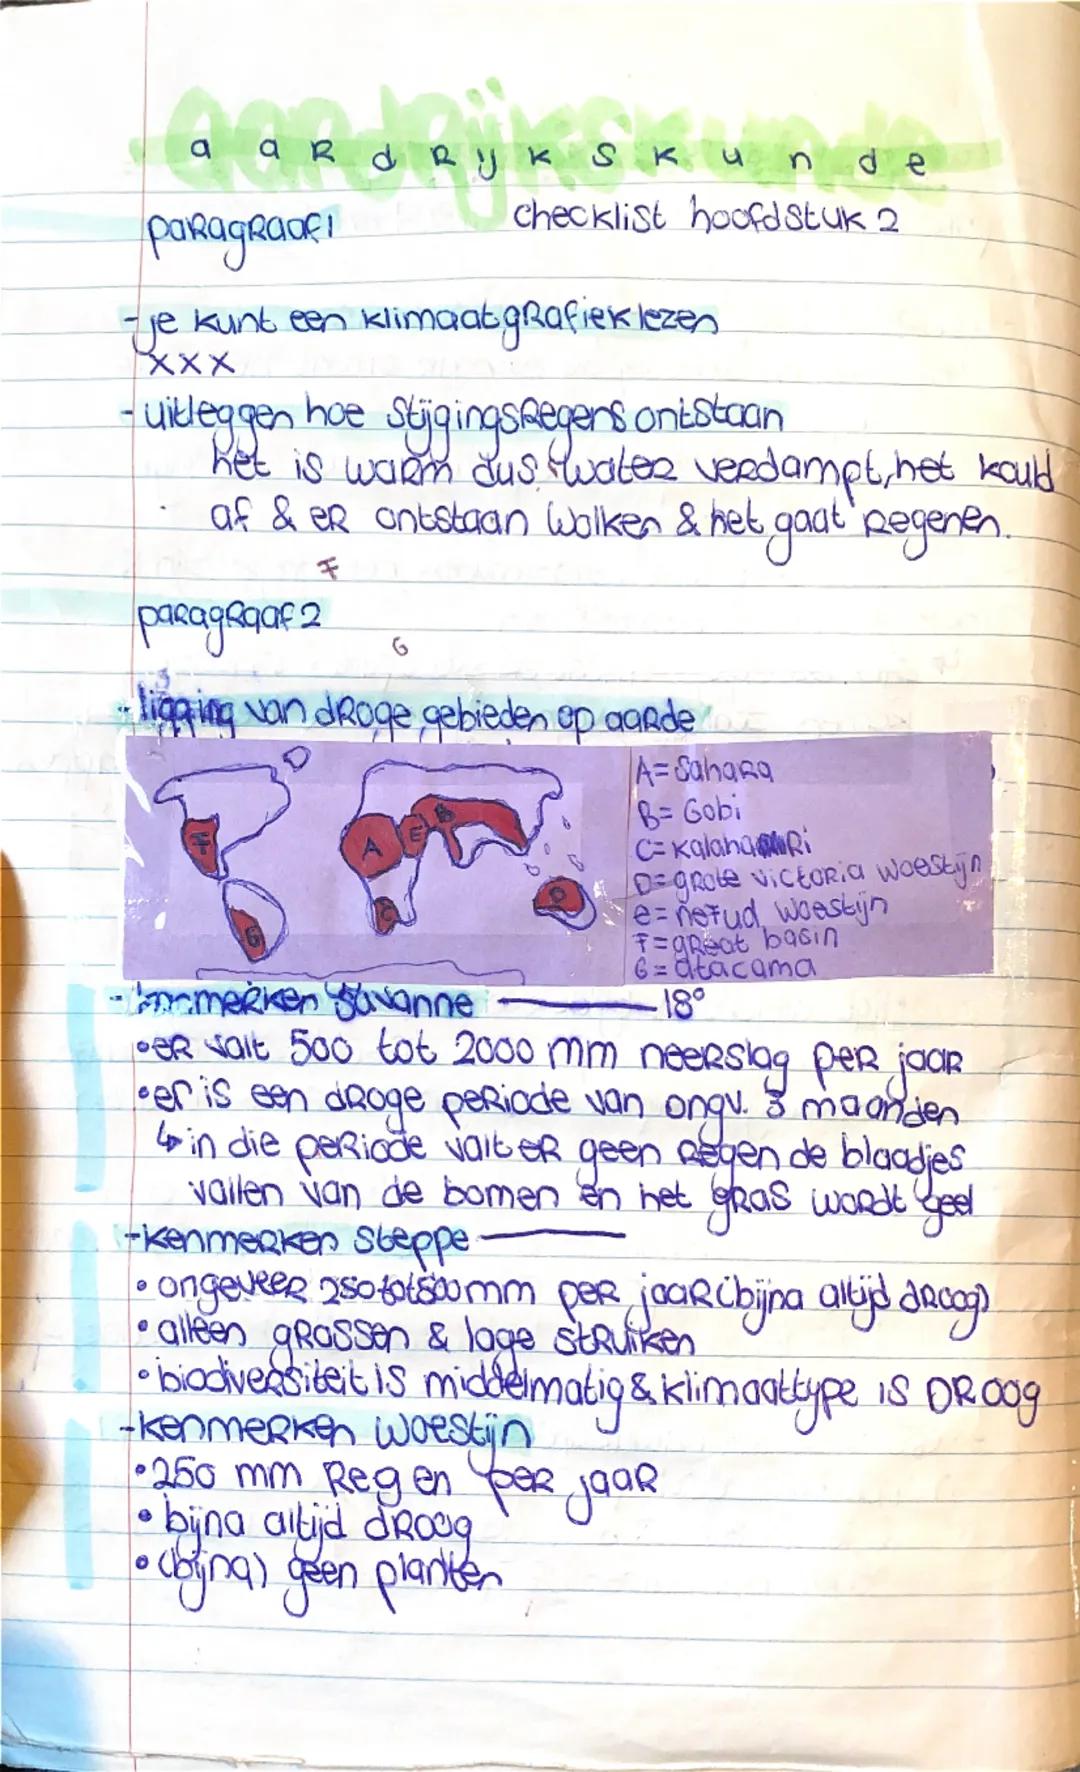 aardrijkskunde
aardrijkskunde
paragraaf 1 checklist hoofdstuk 2
- je kunt een klimaatgrafiek lezen
xxx
- uitleggen hoe stijgingsregens ontstaan
het is warm dus water verdampt, het kould
af & er ontstaan wolken & het gaat regenen.
F
paragraaf 2
G
- ligging van droge gebieden op aarde
A = Sahara
B = Gobi
C = Kalahari
D = grote victoria woestijn
e = nefud woestijn
F = great basin
G = atacama
F A E B C D G
- kenmerken savanne 18°
• er valt 500 tot 2000 mm neerslag per jaar
• er is een droge periode van ongv. 3 maanden
↳ in die periode valt er geen regen de blaadjes
vallen van de bomen en het gras wordt geel
- kenmerken steppe
• ongeveer 250 tot 500 mm per jaar (bijna altijd droog)
• alleen grassen & lage struiken
• biodiversiteit is middelmatig & klimaattype is DROOG
- kenmerken woestijn
• 250 mm Regen per jaar
• bijna altijd droog
• (bijna) geen planten